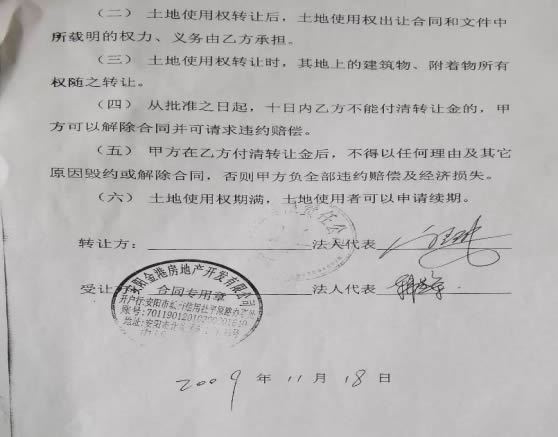 （二）土地使用权转让后，土地使用权出让合同和文件中
所载明的权力、义务由乙方承担。
（三）土地使用权转让时，其地上的建筑物、附着物所有
权随之转让。
（四）从批准之日起，十日内乙方不能付清转让金的，甲
方可以解除合同并可请求违约赔偿。
（五）甲方在乙方付清转让金后，不得以任何理由及其它
原因毁约或解除合同，否则甲方负全部违约赔偿及经济损失。
（六）土地使用权期满，土地使用者可以申请续期。
转让方： 法人代表
受让方 法人代表
安阳金港房地产开发有限公司
合同专用章
开户行:安阳市
账号:
地址:安阳市
2009年11月18日